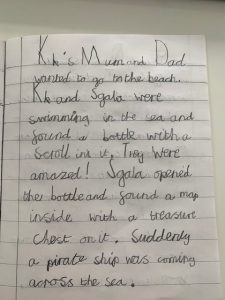 Kk's Mum and Dad
wanted to go to the beach.
Kk and Sgala were
swimming in the sea and
found a bottle with a
scroll in it, They were
amazed! Sgala opened
the bottle and found a map
inside with a treasure
chest on it. Suddenly
a pirate ship was coming
across the sea.